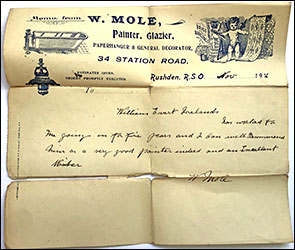 Memo. from
W. MOLE,
Painter, Glazier,
PAPERHANGER & GENERAL DECORATOR,
34 STATION ROAD.
ESTIMATES GIVEN.
ORDERS PROMPTLY EXECUTED
Rushden, R.S.O. Nov 19
To
William Ewart
has worked for
Me going on for five years and I can well Recommend
him as a very good painter indeed and an Excellent
W Mole